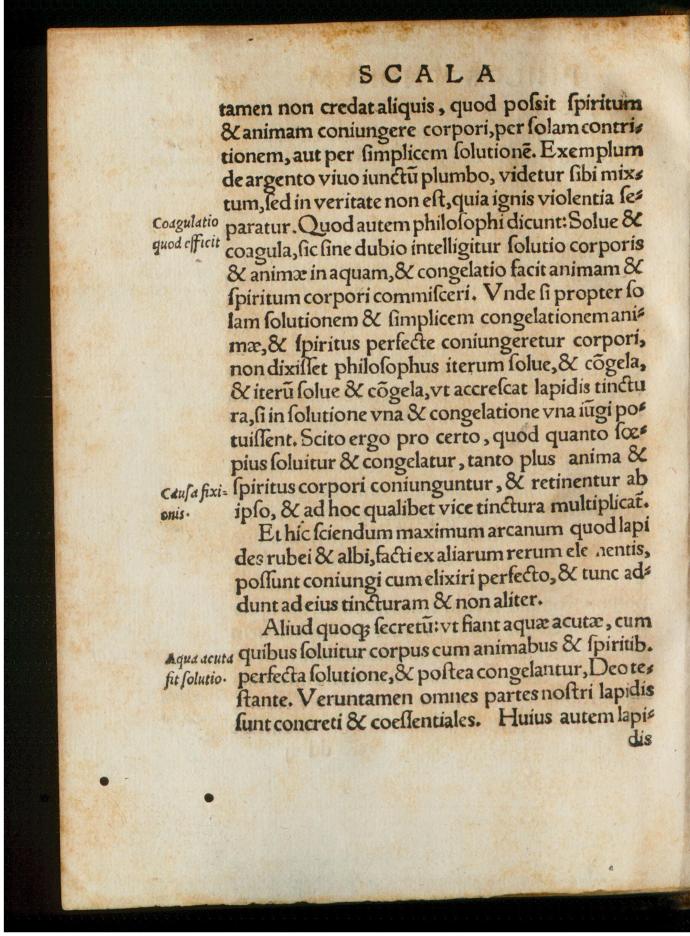 SCALA
tamen non credat aliquis, quod poſsit ſpiritum
& animam coniungere corpori, per ſolam contri-
tionem, aut per ſimplicem ſolutionē. Exemplum
de argento viuo iunctū plumbo, videtur ſibi mix-
tum, ſed in veritate non eſt, quia ignis violentia ſe-
Coagulatio
quod efficit
paratur. Quod autem philoſophi dicunt: Solue &
coagula, ſic ſine dubio intelligitur ſolutio corporis
& animæ in aquam, & congelatio facit animam &
ſpiritum corpori commiſceri. Vnde ſi propter ſo
lam ſolutionem & ſimplicem congelationem ani-
mæ, & ſpiritus perfecte coniungeretur corpori,
non dixiſſet philoſophus iterum ſolue, & cōgela,
& iterū ſolue & cōgela, vt accreſcat lapidis tinctu
ra, ſi in ſolutione vna & congelatione vna iūgi po-
tuiſſent. Scito ergo pro certo, quod quanto ſœ-
pius ſoluitur & congelatur, tanto plus anima &
Cauſa fixi-
onis.
ſpiritus corpori coniunguntur, & retinentur ab
ipſo, & ad hoc qualibet vice tinctura multiplicat̄.
Et hic ſciendum maximum arcanum quod lapi
des rubei & albi, facti ex aliarum rerum ele nentis,
poſſunt coniungi cum elixiri perfecto, & tunc ad-
dunt ad eius tincturam & non aliter.
Aliud quoqꝫ ſecretū: vt fiant aquæ acutæ, cum
Aqua acuta
fit ſolutio.
quibus ſoluitur corpus cum animabus & ſpiritib.
perfecta ſolutione, & poſtea congelantur, Deo te-
ſtante. Veruntamen omnes partes noſtri lapidis
ſunt concreti & coeſſentiales. Huius autem lapi-
dis